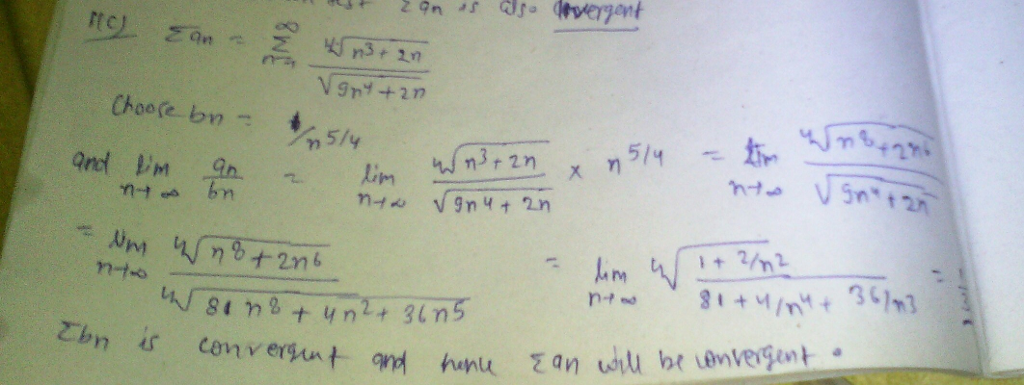 Σan is also convergent
11(c) Σan = ∞Σn=1 ∜(n³ + 2n) / √(9n⁴ + 2n)
Choose bn = 1/n^5/4
and lim n→∞ an/bn = lim n→∞ ∜(n³ + 2n) / √(9n⁴ + 2n) × n^5/4 = lim n→∞ ∜(n⁸ + 2n⁶) / √(9n⁴ + 2n)
= lim n→∞ ∜(n⁸ + 2n⁶) / ∜(81n⁸ + 4n² + 36n⁵) = lim n→∞ ∜((1 + 2/n²) / (81 + 4/n⁴ + 36/n³)) =
Σbn is convergent and hence Σan will be convergent.